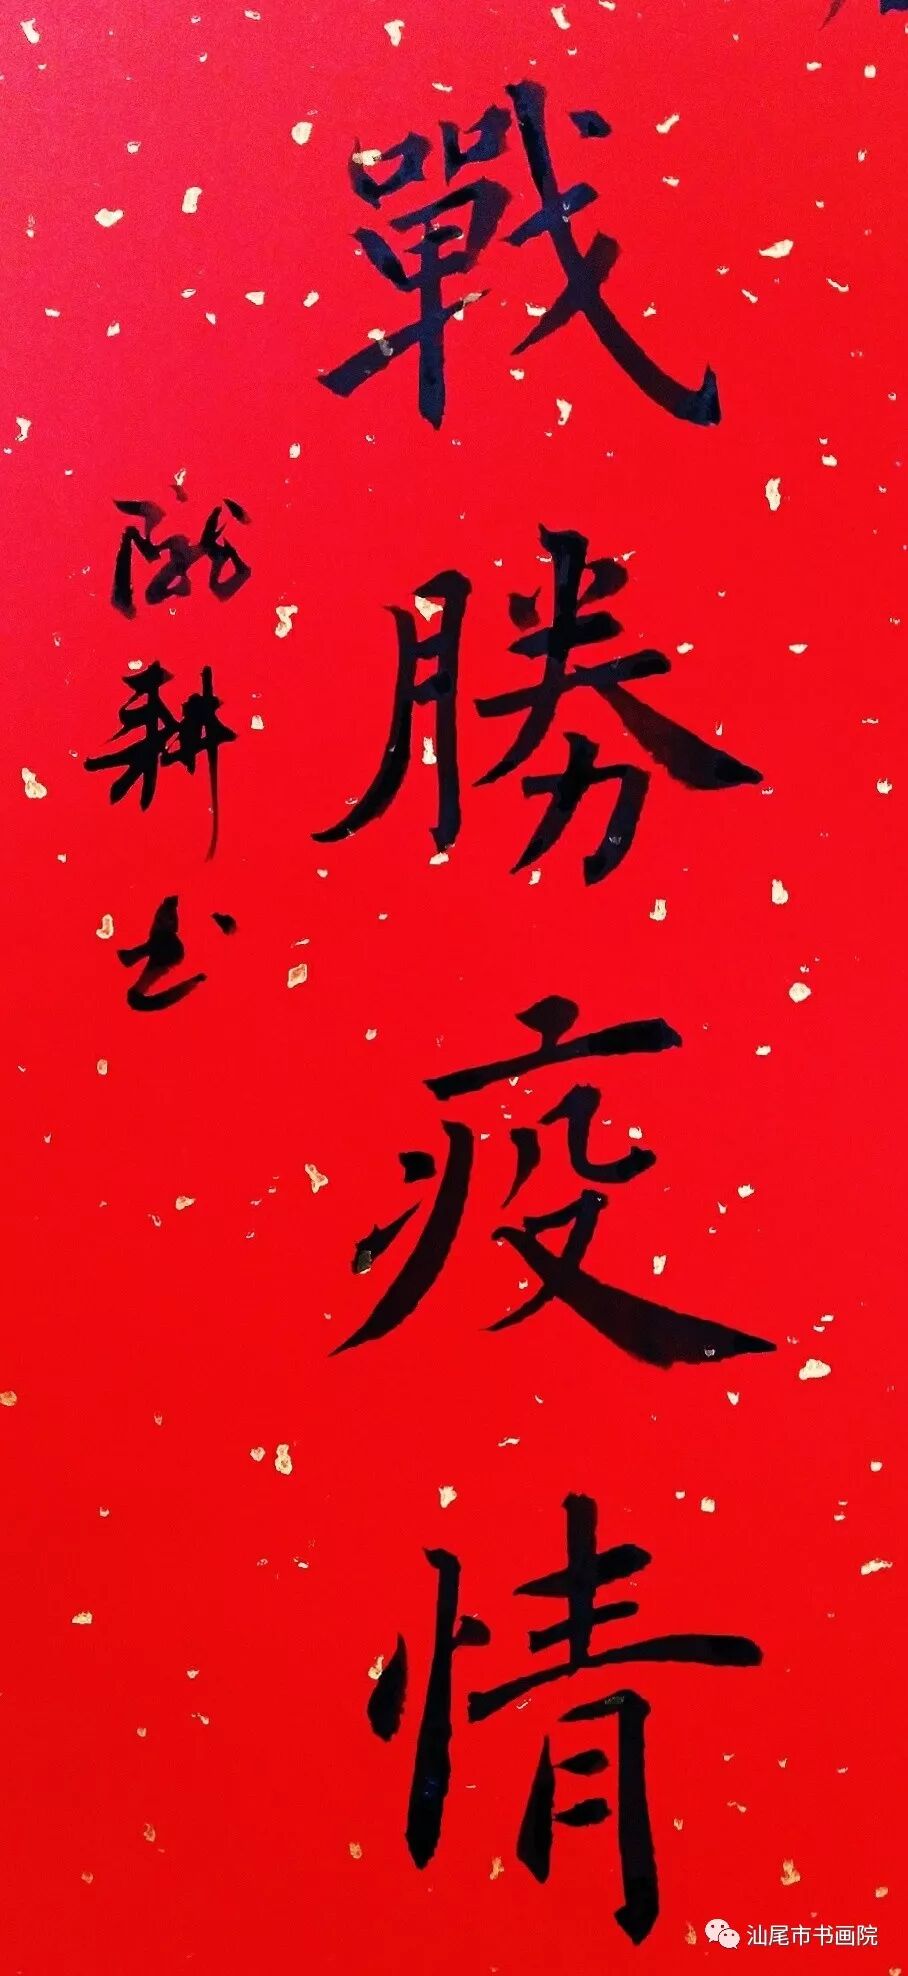 戰勝疫情
陇耕书
汕尾市书画院